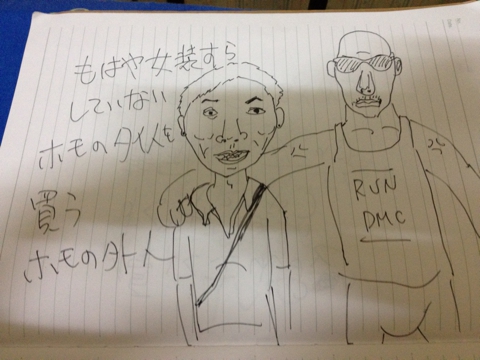 もはや女装すら
していない
ホモのタイ人を
買う
ホモの外人
RUN
DMC